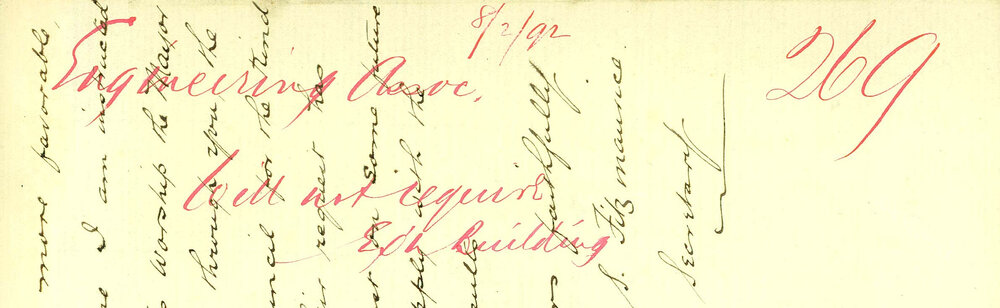 8/2/92
269
Engineering Assoc.
Will not require
Exh Building
more favorable
I am instructed
Worship the Mayor
through you the
for the kind
request has
on some future
with the
faithfully
S. Fitzmaurice
Secretary